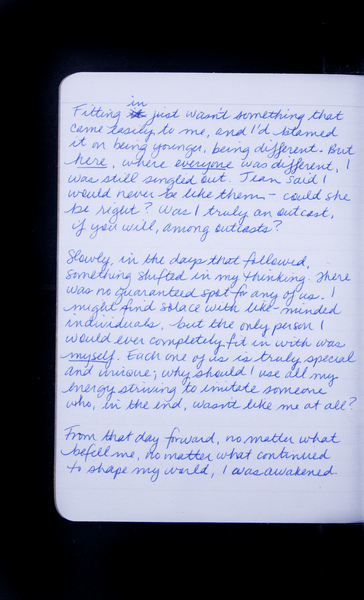 Fitting in just wasn't something that
came easily to me, and I'd blamed
it on being younger, being different. But
here, where everyone was different, I
was still singled out. Jean said I
would never be like them - could she
be right? Was I truly an outcast,
if you will, among outcasts?
Slowly, in the days that followed,
something shifted in my thinking. There
was no guaranteed spot for any of us. I
might find solace with like-minded
individuals, but the only person I
would ever completely fit in with was
myself. Each one of us is truly special
and unique; why should I use all my
energy striving to imitate someone
who, in the end, wasn't like me at all?
From that day forward, no matter what
befell me, no matter what continued
to shape my world, I was awakened.